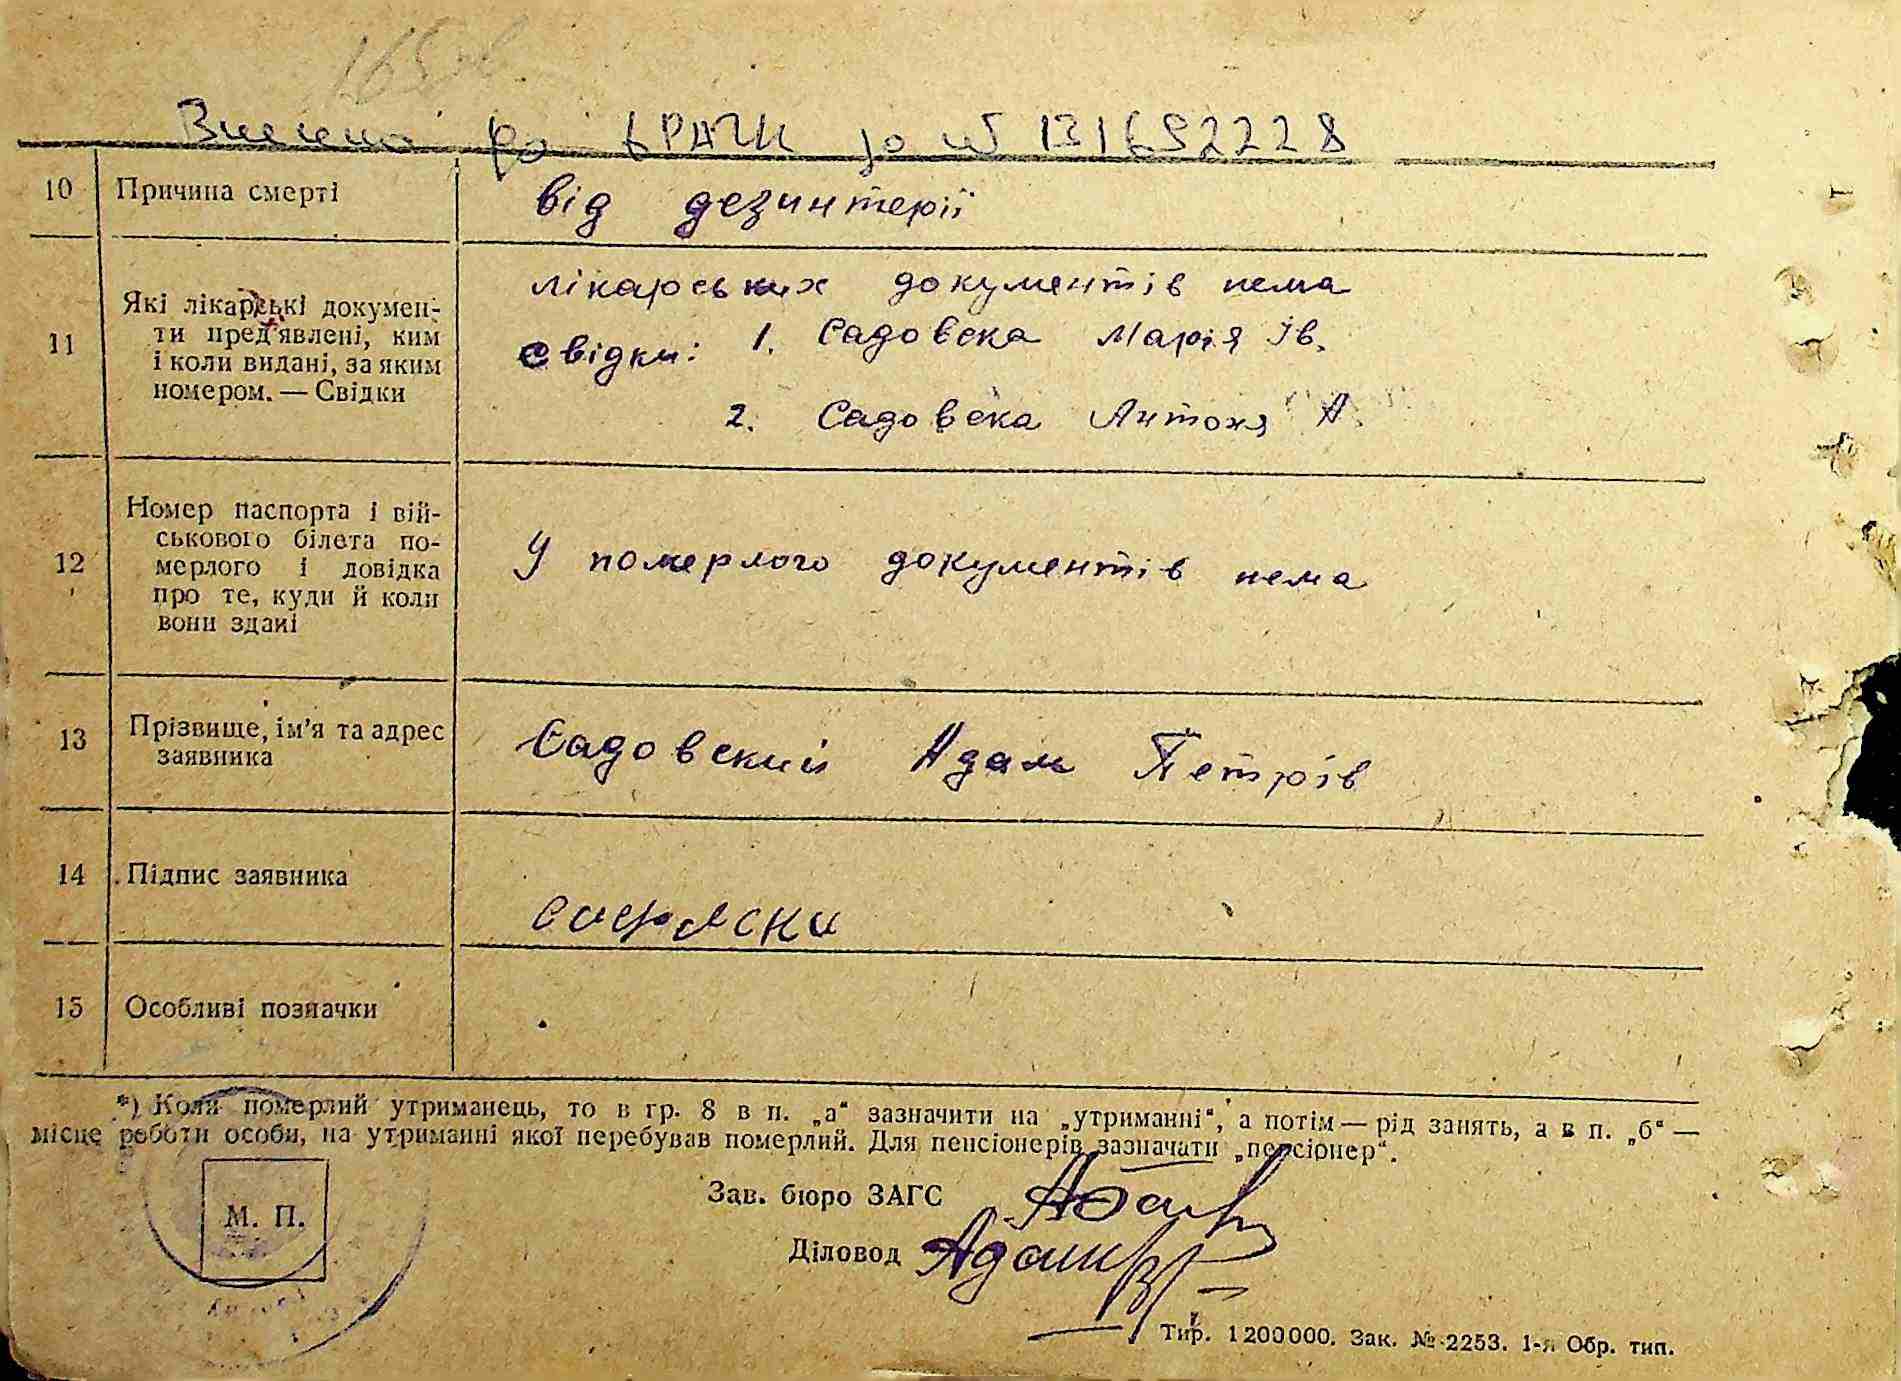 165
Внесено до ДРАЦС за № 131652228
10 Причина смерті від дезинтерії
11 Які лікарські докумен-
ти пред'явлені, ким
і коли видані, за яким
номером. — Свідки
лікарських документів нема
свідки: 1. Садовска Марія Ів.
2. Садовска Антоня А.
12 Номер паспорта і вій-
ськового білета по-
мерлого і довідка
про те, куди й коли
вони здані
У померлого документів нема
13 Прізвище, ім'я та адрес
заявника
Садовский Адам Петрів
14 Підпис заявника
15 Особливі позначки
*) Коли померлий утриманець, то в гр. 8 в п. „а“ зазначити на „утриманні“, а потім — рід занять, а в п. „б“ —
місце роботи особи, на утриманні якої перебував померлий. Для пенсіонерів зазначати „пенсіонер“.
Зав. бюро ЗАГС
М. П.
Діловод
Тир. 1200000. Зак. № 2253. 1-я Обр. тип.